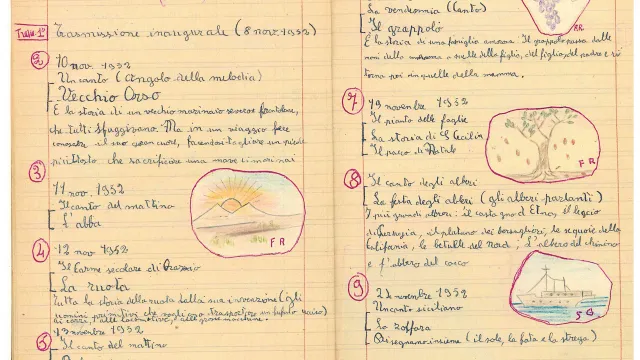 Trasm. 1ª
Trasmissione inaugurale (8 nov. 1952)
2
10 nov. 1952
Un canto (Angolo della melodia)
Vecchio Orso
È la storia di un vecchio marinaio severo e
che tutti sfuggivano. Ma in un viaggio fece
conoscere il suo gran cuore, facendosi tagliare un piede
piuttosto che sacrificare una nave coi marinai
3
11 nov. 1952
Il canto del mattino
L'alba
FR
4
12 nov 1952
Il Carme secolare di Orazio
La ruota
Tutta la storia della ruota dalla sua invenzione (gli
uomini primitivi che vogliono trasportare un
di carri, alle locomotive, alle grosse macchine.
5
13 novembre 1952
Il canto del mattino
La vendemmia (Canto)
Il grappolo
È la storia di una famiglia amorosa. Il grappolo passa dalle
mani della mamma a quelle della figlia, del figlio, del padre e ri
torna poi in quelle della mamma.
FR
7
19 novembre 1952
Il pianto delle foglie
La storia di S. Cecilia
Il parco di Natale
FR
8
Il canto degli alberi
La festa degli alberi (gli alberi parlanti)
I più grandi alberi: il castagno d'Etna, il leccio
di Perugia, il platano dei bersaglieri, le sequoie della
California, le betulle del nord, l'albero del chinino
e l'albero del cocco
9
21 novembre 1952
Un canto siciliano
La zolfara
Disegnamo insieme (il sole, la fata e la strega)
SG